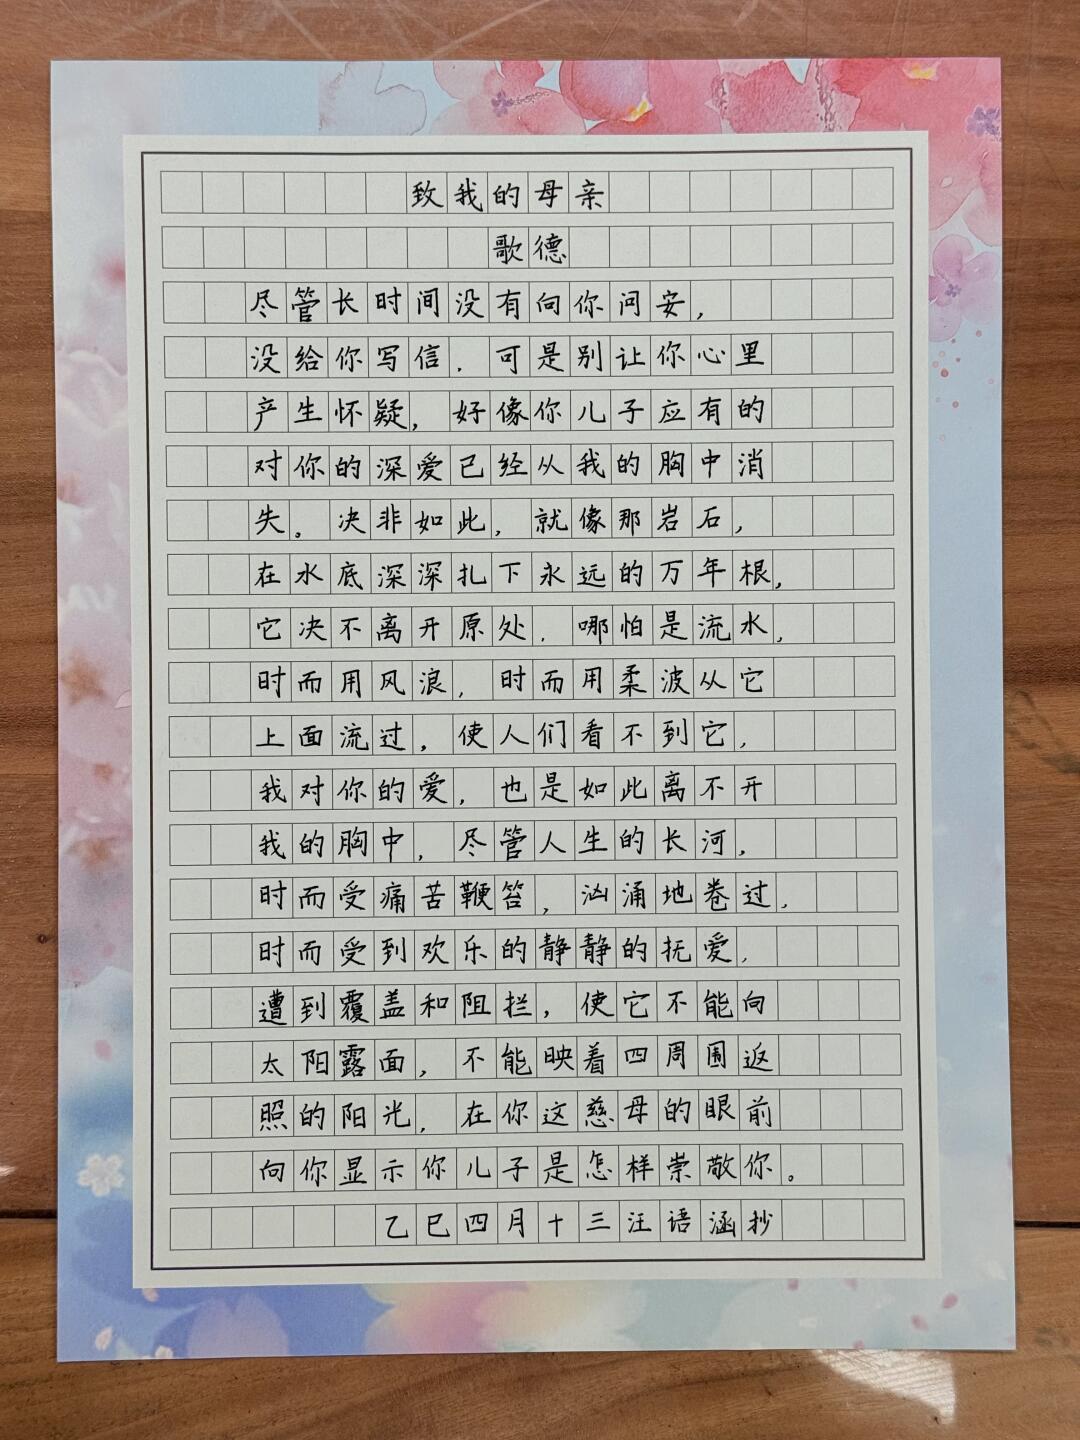 致我的母亲
歌德
尽管长时间没有向你问安，
没给你写信．可是别让你心里
产生怀疑，好像你儿子应有的
对你的深爱已经从我的胸中消
失。决非如此，就像那岩石，
在水底深深扎下永远的万年根，
它决不离开原处．哪怕是流水，
时而用风浪，时而用柔波从它
上面流过，使人们看不到它，
我对你的爱，也是如此离不开
我的胸中，尽管人生的长河，
时而受痛苦鞭笞，汹涌地卷过，
时而受到欢乐的静静的抚爱，
遭到覆盖和阻拦，使它不能向
太阳露面，不能映着四周围返
照的阳光，在你这慈母的眼前
向你显示你儿子是怎样崇敬你。
乙巳四月十三汪语涵抄